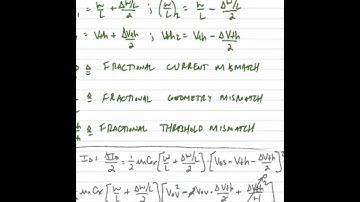 = W/L + ΔW/L/2 ; (W/L)₂ = W/L - ΔW/L/2
= Vth + ΔVth/2 ; Vth2 = Vth - ΔVth/2
≜ FRACTIONAL CURRENT MISMATCH
≜ FRACTIONAL GEOMETRY MISMATCH
th ≜ FRACTIONAL THRESHOLD MISMATCH
ID + ΔID/2 = 1/2 μnCox [W/L + ΔW/L/2] · [VGS - Vth - ΔVth/2]²
μnCox [W/L + ΔW/L/2] [Vov² - 2Vov · ΔVth/2 + ΔVth/4]